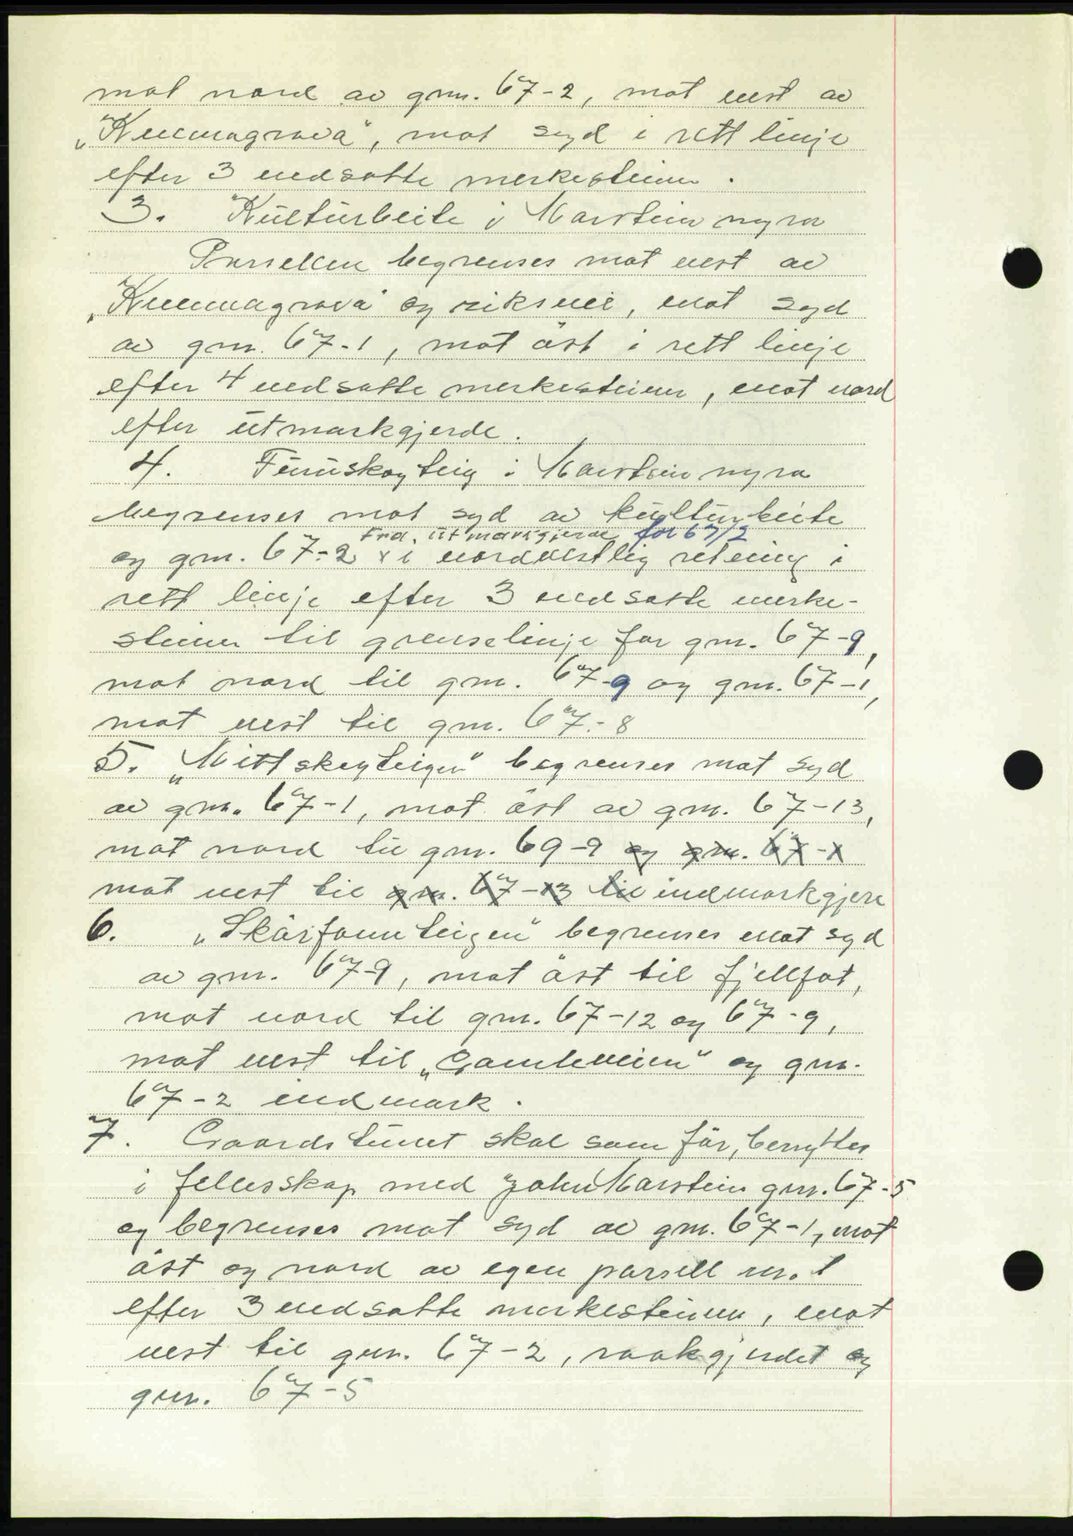 mot nord av gnr. 67-2, mot vest av
„Kvennagrova“, mot syd i rett linje
efter 3 nedsatte merkesteiner.
3. Kulturbeite i Marstein myra
Parsellen begrenses mot vest av
„Kvennagrova“ og riksvei, mot syd
av gnr. 67-1, mot øst i rett linje
efter 4 nedsatte merkesteiner, mot nord
efter utmarkgjerde.
4. Furuskogteig i Marstein myra
begrenses mot syd av kulturbeite
Fra utmarkgjerde for 67/2
og gnr. 67-2 x i nordvestlig retning i
rett linje efter 3 nedsatte merke-
steiner til grenselinje for gnr. 67-9,
mot nord til gnr. 67-9 og gnr. 67-1,
mot vest til gnr. 67-8
5. „Mittskogteigen“ begrenses mot syd
av gnr. 67-1, mot øst av gnr. 67-13,
mot nord til gnr. 69-9 og gnr. 67-1
mot vest til gnr. 67-13 til indmarkgjere
6. „Skårfonnteigen“ begrenses mot syd
av gnr. 67-9, mot øst til fjellfot,
mot nord til gnr. 67-12 og 67-9,
mot vest til „Gamleveien“ og gnr.
67-2 indmark.
7. Gaardstunet skal som før, benyttes
i fellesskap med John Marstein gnr. 67-5
og begrenses mot syd av gnr. 67-1, mot
øst og nord av egen parsell nr. 1
efter 3 nedsatte merkesteiner, mot
vest til gnr. 67-2, raakgjerdet og
gnr. 67-5